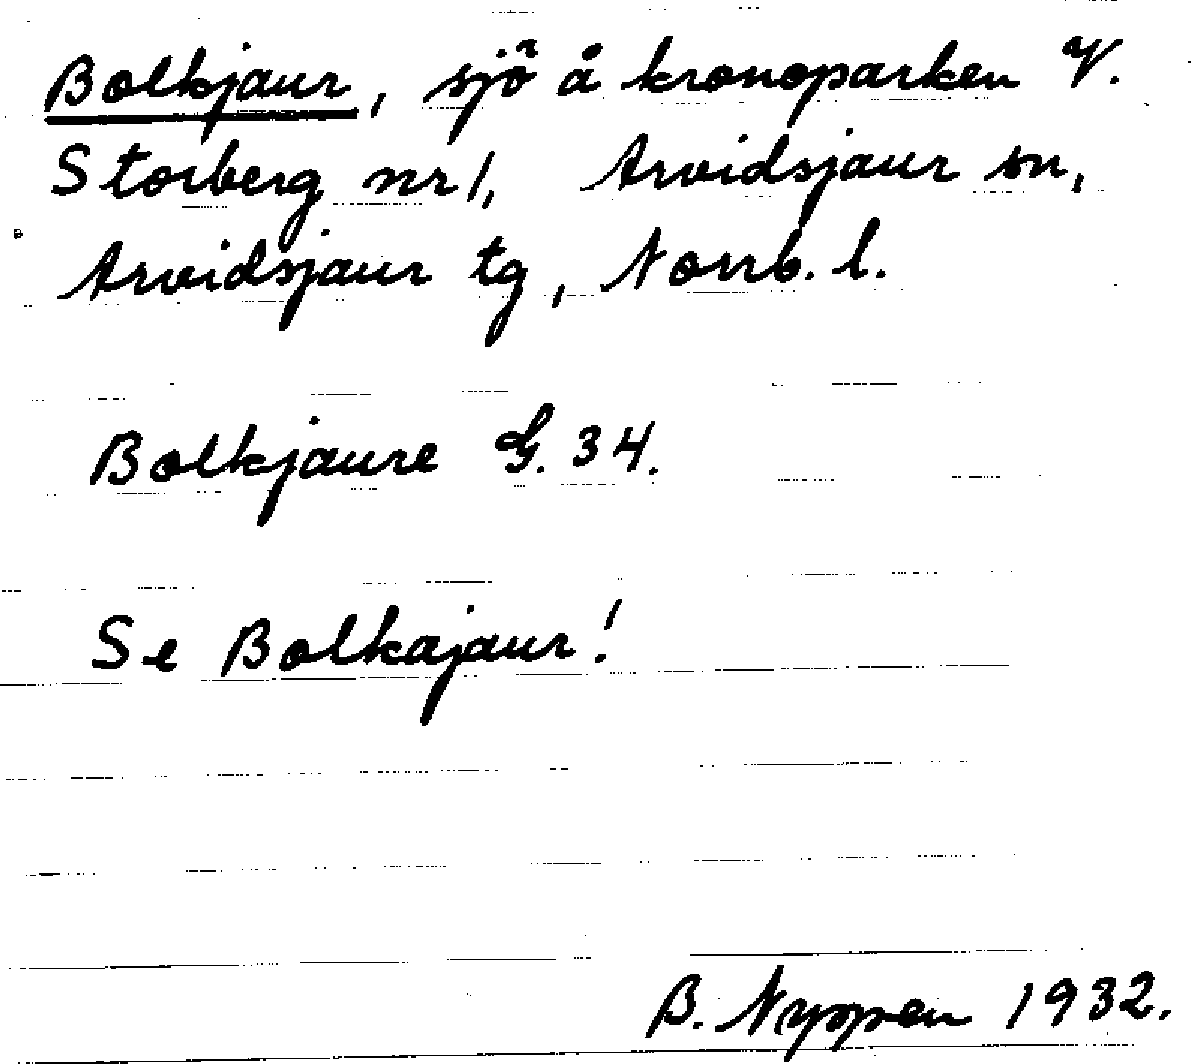 Bolkjaur, sjö å kronoparken V.
Storberg nr 1, Arvidsjaur sn,
Arvidsjaur tg, Norrb. l.
Bolkjaure G. 34.
Se Bolkajaur!
B. Nyppen 1932.